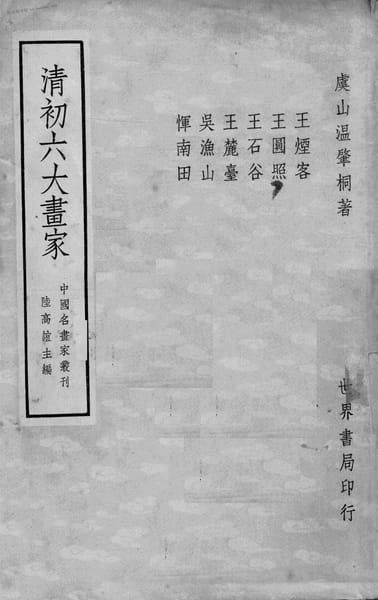 虞山温肇桐著
世界書局印行
王煙客
王圓照
王石谷
王麓臺
吳漁山
惲南田
清初六大畫家
中國名畫家叢刊
陸高誼主編